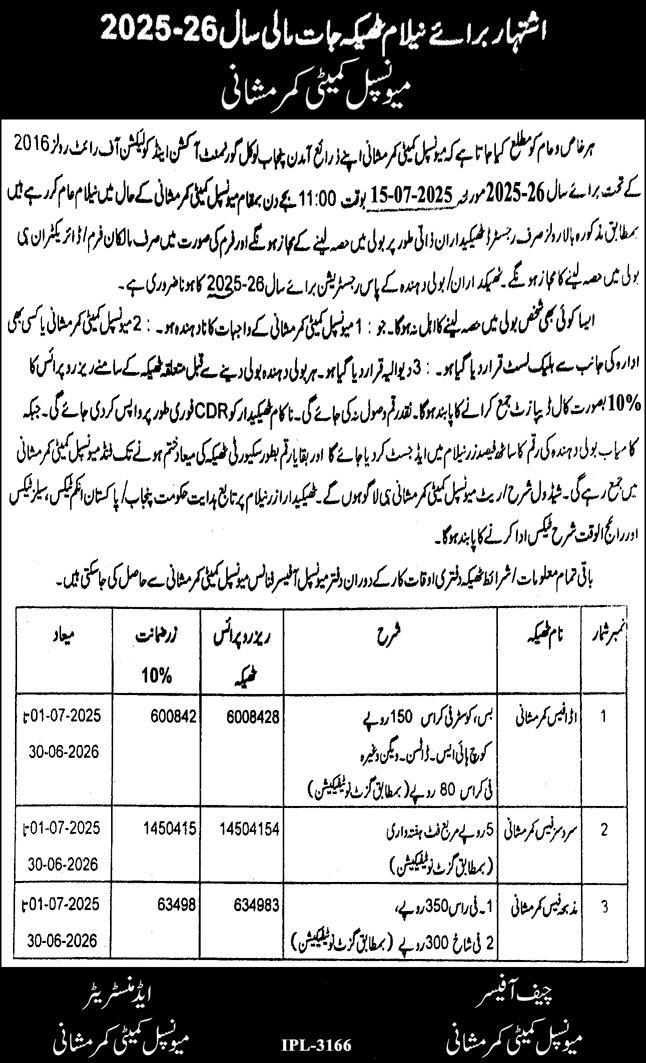 اشتہار برائے نیلام ٹھیکہ جات مالی سال 26-2025
میونسپل کمیٹی کمر مشانی
ہر خاص و عام کو مطلع کیا جاتا ہے کہ میونسپل کمیٹی کمر مشانی اپنے ذرائع آمدن پنجاب لوکل گورنمنٹ آکشن اینڈ کولیکشن آف رائٹ رولز 2016
کے تحت برائے سال 26-2025 مورخہ 15-07-2025 بوقت 11:00 بجے دن بمقام میونسپل کمیٹی کمر مشانی کے حال میں نیلام عام کر رہے ہیں
بمطابق مذکورہ بالا رولز صرف رجسٹرڈ ٹھیکیداران ذاتی طور پر بولی میں حصہ لینے کے مجاز ہونگے اور فرم کی صورت میں صرف مالکان فرم/ڈائریکٹران ہی
بولی میں حصہ لینے کا مجاز ہونگے۔ ٹھیکیداران/بولی دہندہ کے پاس رجسٹریشن برائے سال 26-2025 کا ہونا ضروری ہے۔
ایسا کوئی بھی شخص بولی میں حصہ لینے کا اہل نہ ہوگا۔ جو : 1 میونسپل کمیٹی کمر مشانی کے واجبات کا نادہندہ ہو۔ : 2 میونسپل کمیٹی کمر مشانی یا کسی بھی
ادارہ کی جانب سے بلیک لسٹ قرار دیا گیا ہو۔ : 3 دیوالیہ قرار دیا گیا ہو۔ ہر بولی دہندہ بولی دینے سے قبل متعلقہ ٹھیکہ کے سامنے ریزرو پرائس کا
10% بصورت کال ڈیپازٹ جمع کرانے کا پابند ہوگا۔ نقد رقم وصول نہ کی جائے گی۔ ناکام ٹھیکیدار کو CDR فوری طور پر واپس کر دی جائے گی۔ جبکہ
کامیاب بولی دہندہ کی رقم کا ساٹھ فیصد زر نیلام میں ایڈجسٹ کر دیا جائے گا اور بقایا رقم بطور سکیورٹی ٹھیکہ کی میعاد ختم ہونے تک فنڈ میونسپل کمیٹی کمر مشانی
میں جمع رہے گی۔ شیڈول شرح/ریٹ میونسپل کمیٹی کمر مشانی ہی لاگو ہوں گے۔ ٹھیکیدار زر نیلام پر تابع ہدایت حکومت پنجاب/پاکستان انکم ٹیکس، سیلز ٹیکس
اور رائج الوقت شرح ٹیکس ادا کرنے کا پابند ہوگا۔
باقی تمام معلومات/شرائط ٹھیکہ دفتری اوقات کار کے دوران دفتر میونسپل آفیسر فنانس میونسپل کمیٹی کمر مشانی سے حاصل کی جاسکتی ہیں۔
نمبر شمار نام ٹھیکہ شرح ریزرو پرائس ٹھیکہ زر ضمانت 10% میعاد
1 اڈا فیس کمر مشانی بس، کوسٹر فی کراس 150 روپے 6008428 600842 01-07-2025 تا
کوچ ہائی ایس۔ ڈاٹسن۔ ویگن وغیرہ 30-06-2026
فی کراس 80 روپے (بمطابق گزٹ نوٹیفیکیشن)
2 سروسز فیس کمر مشانی 5 روپے مربع فٹ ہفتہ داری 14504154 1450415 01-07-2025 تا
(بمطابق گزٹ نوٹیفیکیشن) 30-06-2026
3 مذبحہ فیس کمر مشانی 1۔ فی راس 350 روپے، 634983 63498 01-07-2025 تا
2 فی شاخ 300 روپے (بمطابق گزٹ نوٹیفیکیشن) 30-06-2026
چیف آفیسر
میونسپل کمیٹی کمر مشانی
ایڈمنسٹریٹر
میونسپل کمیٹی کمر مشانی
IPL-3166